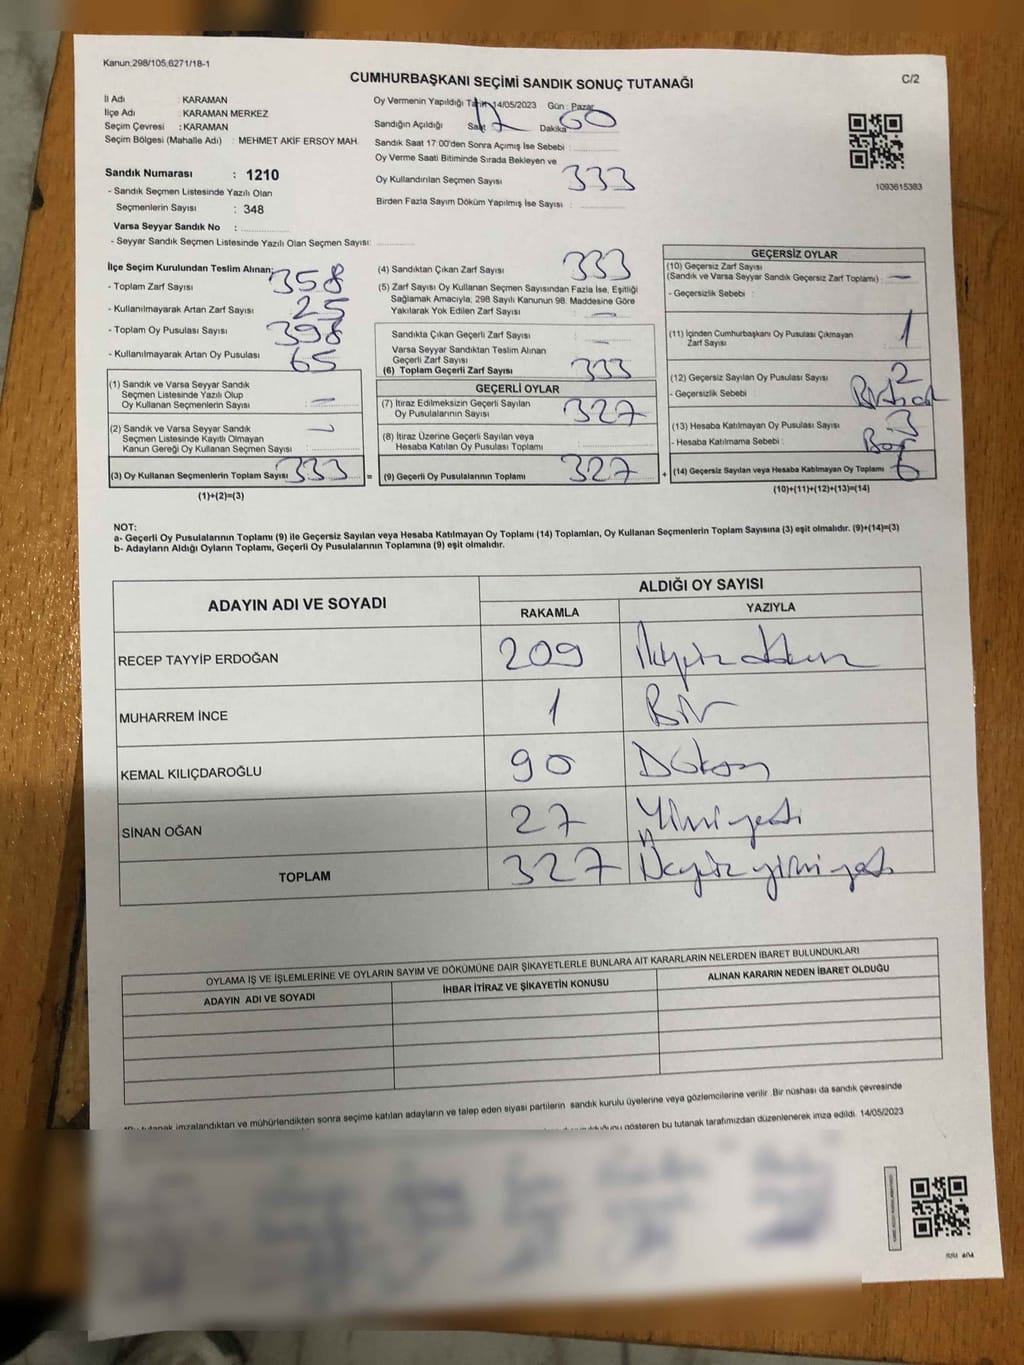 Kanun:298/105;6271/18-1
CUMHURBAŞKANI SEÇİMİ SANDIK SONUÇ TUTANAĞI
C/2
İl Adı : KARAMAN
İlçe Adı : KARAMAN MERKEZ
Seçim Çevresi : KARAMAN
Seçim Bölgesi (Mahalle Adı) : MEHMET AKİF ERSOY MAH.
Oy Vermenin Yapıldığı Tarih: 14/05/2023 Gün : Pazar
Sandığın Açıldığı Saat 17 Dakika 00
Sandık Saat 17:00'den Sonra Açımış İse Sebebi :
Oy Verme Saati Bitiminde Sırada Bekleyen ve
Oy Kullandırılan Seçmen Sayısı 333
Birden Fazla Sayım Döküm Yapılmış İse Sayısı :
1093615383
Sandık Numarası : 1210
- Sandık Seçmen Listesinde Yazılı Olan
Seçmenlerin Sayısı : 348
Varsa Seyyar Sandık No :
- Seyyar Sandık Seçmen Listesinde Yazılı Olan Seçmen Sayısı:
İlçe Seçim Kurulundan Teslim Alınan;
- Toplam Zarf Sayısı 358
- Kullanılmayarak Artan Zarf Sayısı 25
- Toplam Oy Pusulası Sayısı 398
- Kullanılmayarak Artan Oy Pusulası 65
(1) Sandık ve Varsa Seyyar Sandık
Seçmen Listesinde Yazılı Olup
Oy Kullanan Seçmenlerin Sayısı —
(2) Sandık ve Varsa Seyyar Sandık
Seçmen Listesinde Kayıtlı Olmayan
Kanun Gereği Oy Kullanan Seçmen Sayısı —
(3) Oy Kullanan Seçmenlerin Toplam Sayısı 333 =
(1)+(2)=(3)
(4) Sandıktan Çıkan Zarf Sayısı 333
(5) Zarf Sayısı Oy Kullanan Seçmen Sayısından Fazla İse, Eşitliği
Sağlamak Amacıyla; 298 Sayılı Kanunun 98. Maddesine Göre
Yakılarak Yok Edilen Zarf Sayısı : —
Sandıkta Çıkan Geçerli Zarf Sayısı : —
Varsa Seyyar Sandıktan Teslim Alınan
Geçerli Zarf Sayısı :
(6) Toplam Geçerli Zarf Sayısı : 333
GEÇERLİ OYLAR
(7) İtiraz Edilmeksizin Geçerli Sayılan
Oy Pusulalarının Sayısı : 327
(8) İtiraz Üzerine Geçerli Sayılan veya
Hesaba Katılan Oy Pusulası Toplamı :
(9) Geçerli Oy Pusulalarının Toplamı 327 +
GEÇERSİZ OYLAR
(10) Geçersiz Zarf Sayısı
(Sandık ve Varsa Seyyar Sandık Geçersiz Zarf Toplamı) —
- Geçersizlik Sebebi :
(11) İçinden Cumhurbaşkanı Oy Pusulası Çıkmayan
Zarf Sayısı 1
(12) Geçersiz Sayılan Oy Pusulası Sayısı 2
- Geçersizlik Sebebi
(13) Hesaba Katılmayan Oy Pusulası Sayısı 3
- Hesaba Katılmama Sebebi : Boş
(14) Geçersiz Sayılan veya Hesaba Katılmayan Oy Toplamı 6
(10)+(11)+(12)+(13)=(14)
NOT:
a- Geçerli Oy Pusulalarının Toplamı (9) ile Geçersiz Sayılan veya Hesaba Katılmayan Oy Toplamı (14) Toplamları, Oy Kullanan Seçmenlerin Toplam Sayısına (3) eşit olmalıdır. (9)+(14)=(3)
b- Adayların Aldığı Oyların Toplamı, Geçerli Oy Pusulalarının Toplamına (9) eşit olmalıdır.
ADAYIN ADI VE SOYADI
ALDIĞI OY SAYISI
RAKAMLA YAZIYLA
RECEP TAYYİP ERDOĞAN 209 İkiyüz dokuz
MUHARREM İNCE 1 Bir
KEMAL KILIÇDAROĞLU 90 Doksan
SİNAN OĞAN 27 Yirmiyedi
TOPLAM 327 Üçyüz yirmi yedi
OYLAMA İŞ VE İŞLEMLERİNE VE OYLARIN SAYIM VE DÖKÜMÜNE DAİR ŞİKAYETLERLE BUNLARA AİT KARARLARIN NELERDEN İBARET BULUNDUKLARI
ADAYIN ADI VE SOYADI İHBAR İTİRAZ VE ŞİKAYETİN KONUSU ALINAN KARARIN NEDEN İBARET OLDUĞU
tutanak imzalandıktan ve mühürlendikten sonra seçime katılan adayların ve talep eden siyasi partilerin sandık kurulu üyelerine veya gözlemcilerine verilir. Bir nüshası da sandık çevresinde
gösteren bu tutanak tarafımızdan düzenlenerek imza edildi. 14/05/2023